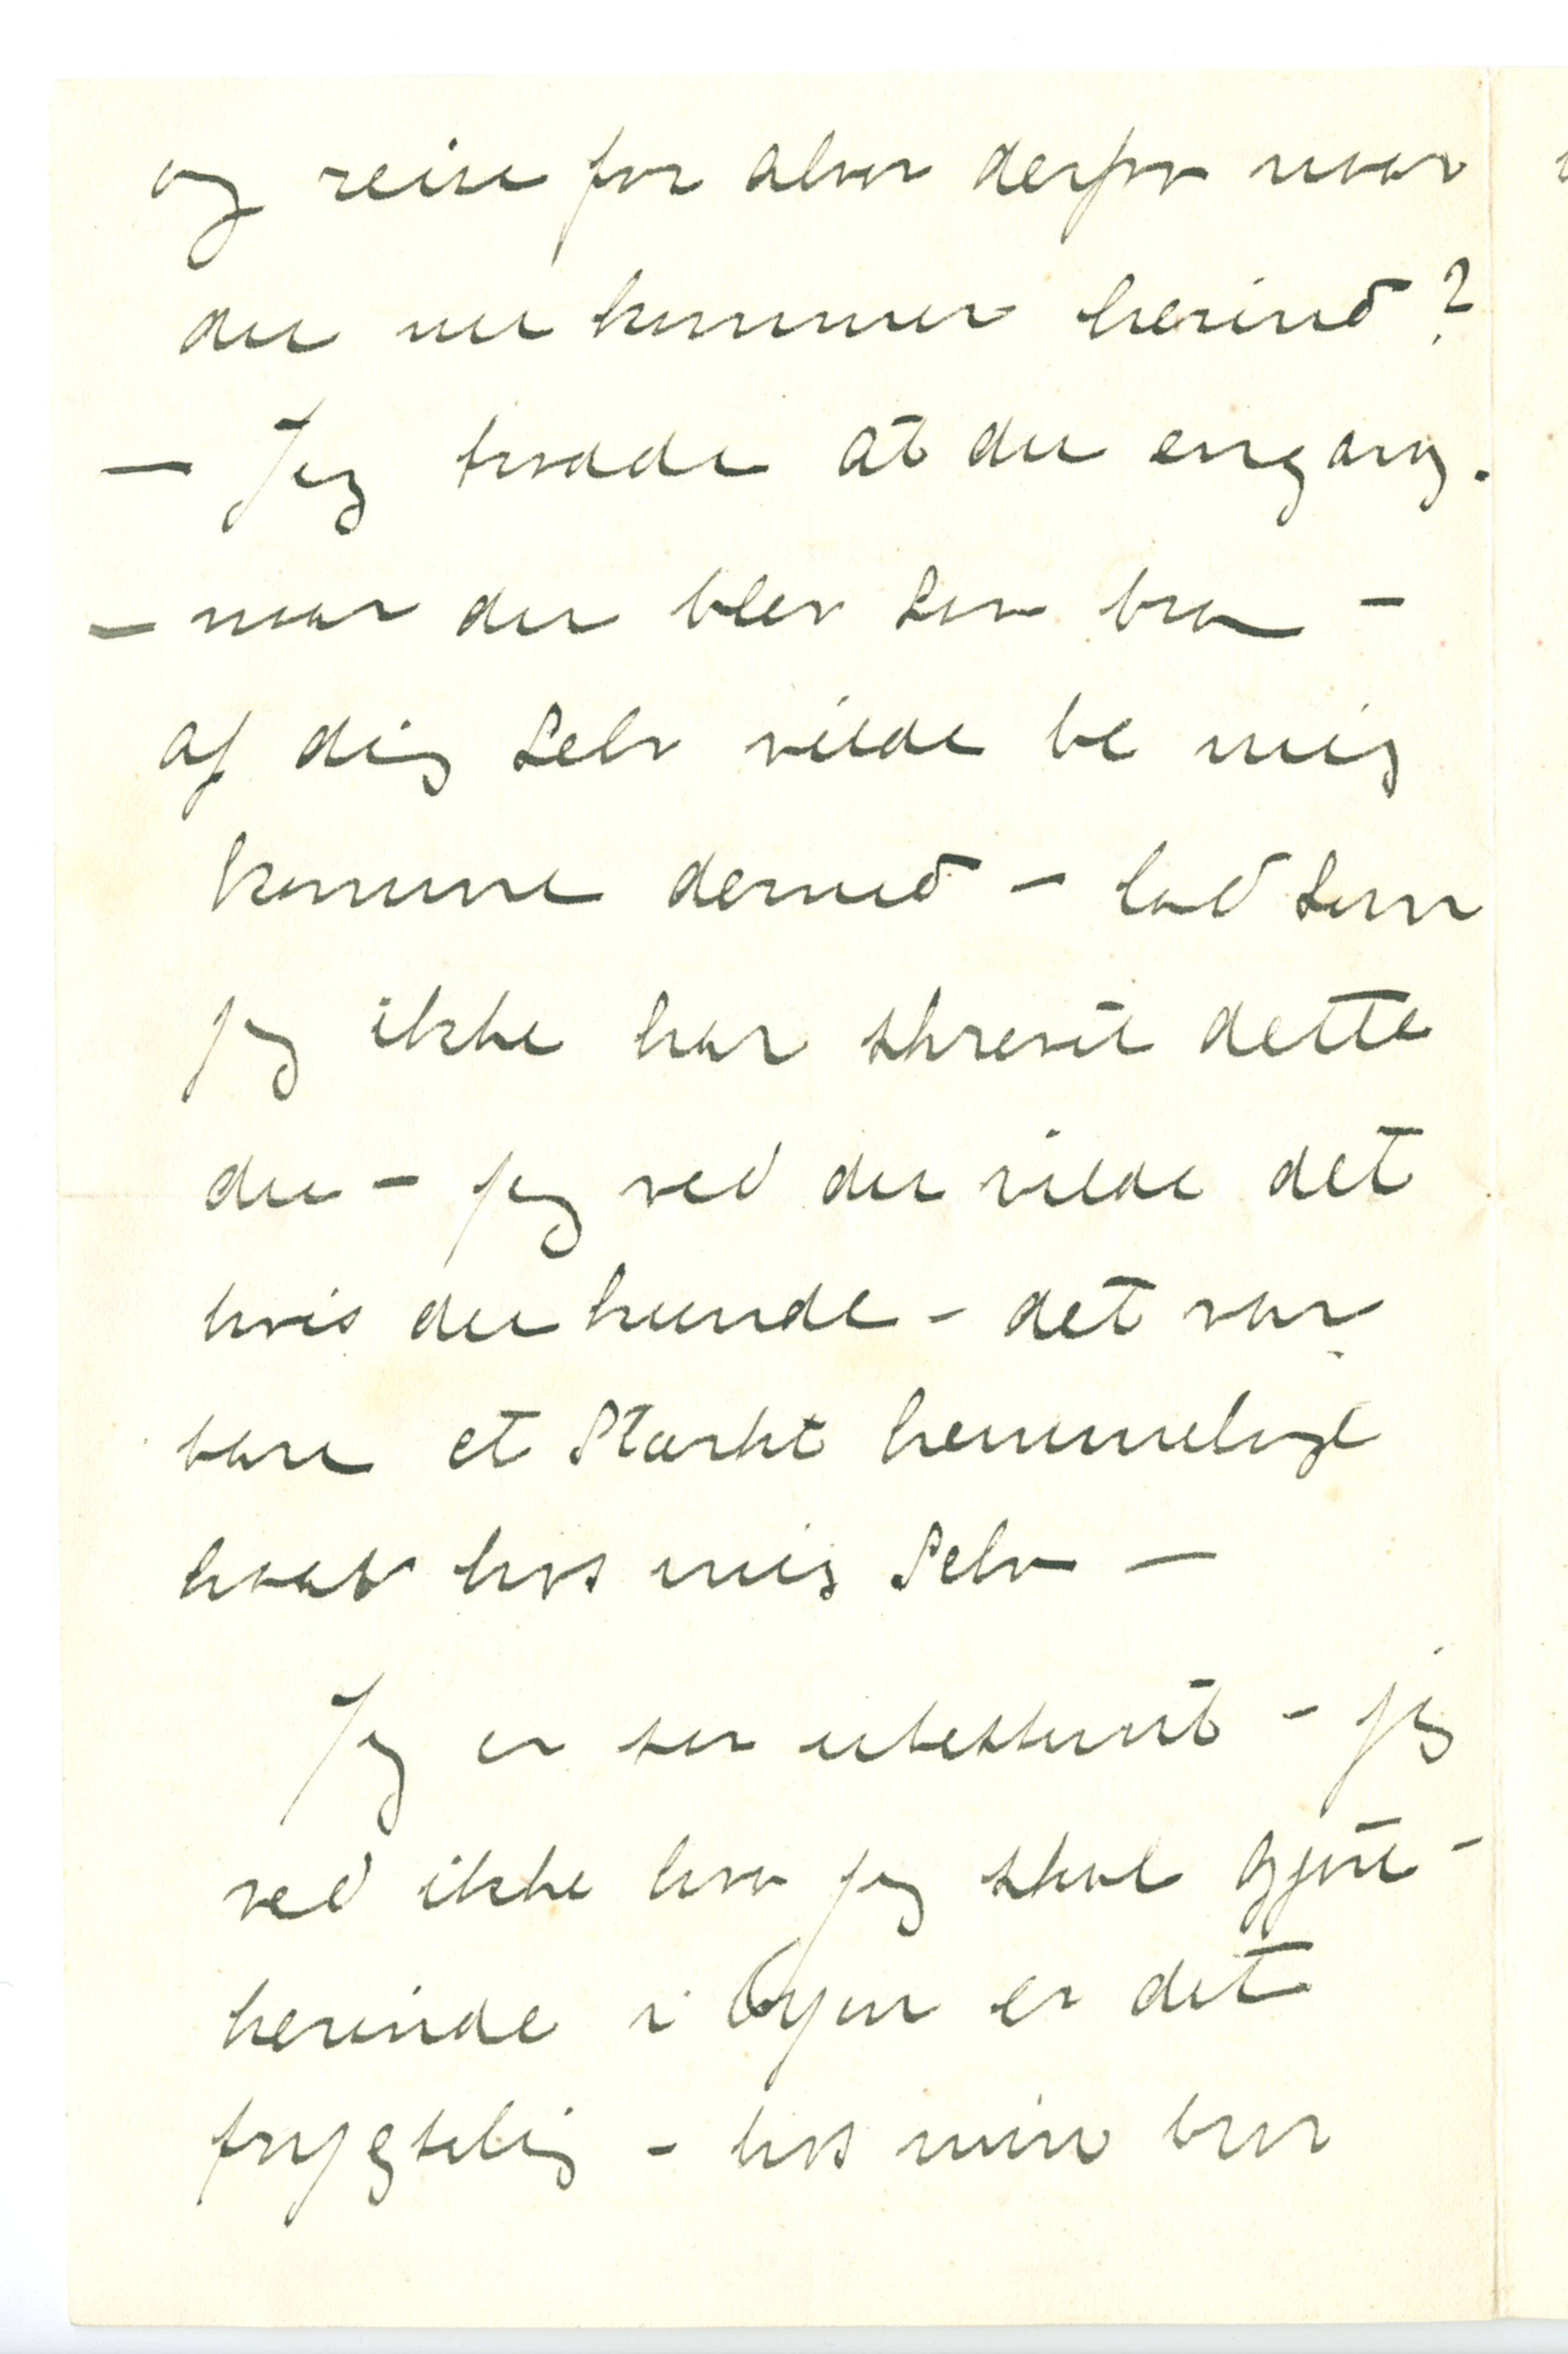 og reise for alvor derfra naar
du nu kommer herind?
— Jeg troede at du engang.
— naar du blev saa bra —
af dig selv vilde be mig
komme derned — lad som
jeg ikke har skrevet dette
du — jeg ved du vilde det
hvis du kunde — det var
bare et stærkt hemmeligt
haab hos mig selv —
Jeg er saa ubestemt — jeg
ved ikke hva jeg skal gjøre —
herinde i Byen er det
frygtelig — hos min bror